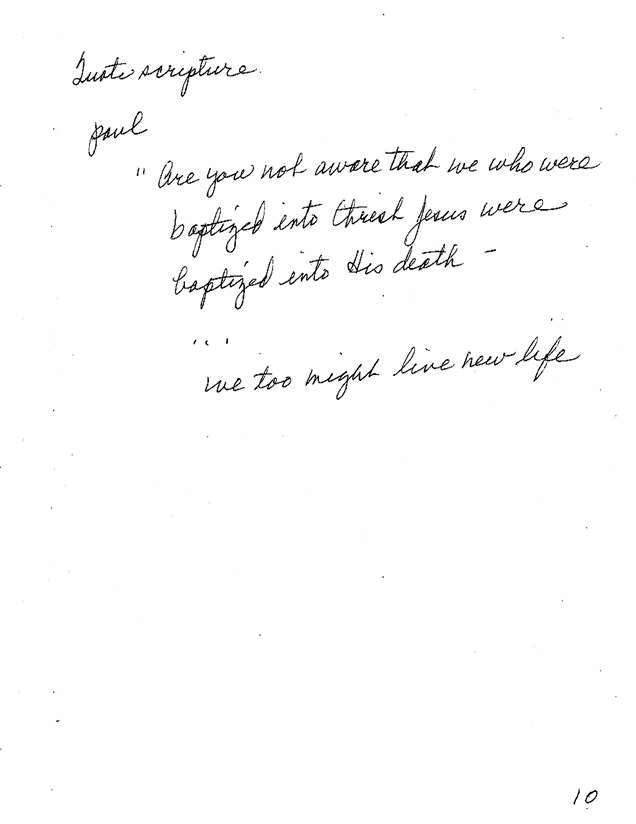 Quote scripture.
Paul
" Are you not aware that we who were
baptized into Christ Jesus were
baptized into His death -
...
we too might live new life
10